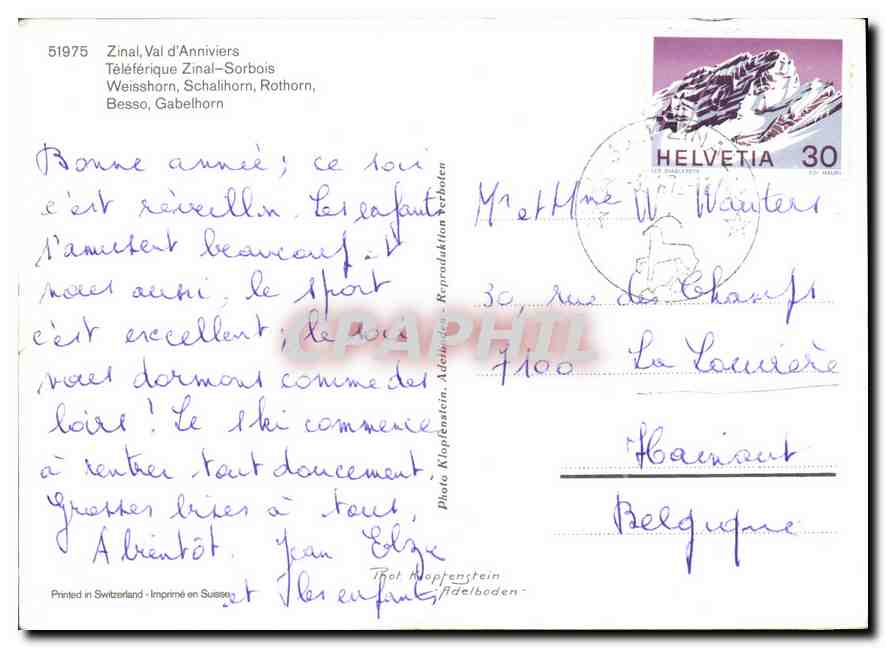 51975 Zinal, Val d'Anniviers
Téléférique Zinal–Sorbois
Weisshorn, Schalihorn, Rothorn,
Besso, Gabelhorn
Bonne année ; ce soir
c'est réveillon. Les enfants
s'amusent beaucoup et
nous aussi, le sport
c'est excellent ; le soir
nous dormons comme des
loirs ! Le ski commence
à rentrer tout doucement.
Grosses bises à tous,
A bientôt. Jean Elze
et les enfants
Printed in Switzerland - Imprimé en Suisse
Phot. Klopfenstein
Adelboden
Photo Klopfenstein, Adelboden - Reproduktion verboten
HELVETIA 30
LES DIABLERETS
Mr et Mme W Wauters
30, rue des Champs
7100 La Louvière
Hainaut
Belgique
CPAPHIL